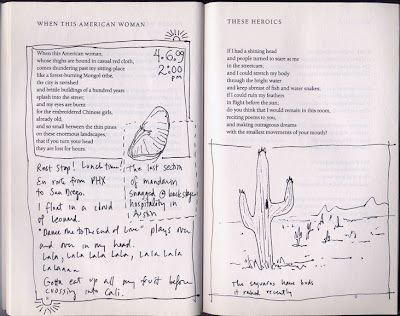 WHEN THIS AMERICAN WOMAN
When this American woman,
whose thighs are bound in casual red cloth,
comes thundering past my sitting-place
like a forest-burning Mongol tribe,
the city is ravished
and brittle buildings of a hundred years
splash into the street;
and my eyes are burnt
for the embroidered Chinese girls,
already old,
and so small between the thin pines
on these enormous landscapes,
that if you turn your head
they are lost for hours.
4.6.09
2:00
pm
Rest stop! Lunch time!
En route from PHX
to San Diego.
I float in a cloud
of Leonard.
"Dance me to the End of Love" plays over
and over in my head.
Lala, Lala Lala Lala, Lala Lala
LaLaaaa
Gotta eat up all my fruit before
crossing into Cali.
The last section
of mandarin
snagged @ backstage
hospitality in
Austin
THESE HEROICS
If I had a shining head
and people turned to stare at me
in the streetcars;
and I could stretch my body
through the bright water
and keep abreast of fish and water snakes;
if I could ruin my feathers
in flight before the sun;
do you think that I would remain in this room,
reciting poems to you,
and making outrageous dreams
with the smallest movements of your mouth?
The saguaros have buds
it rained recently